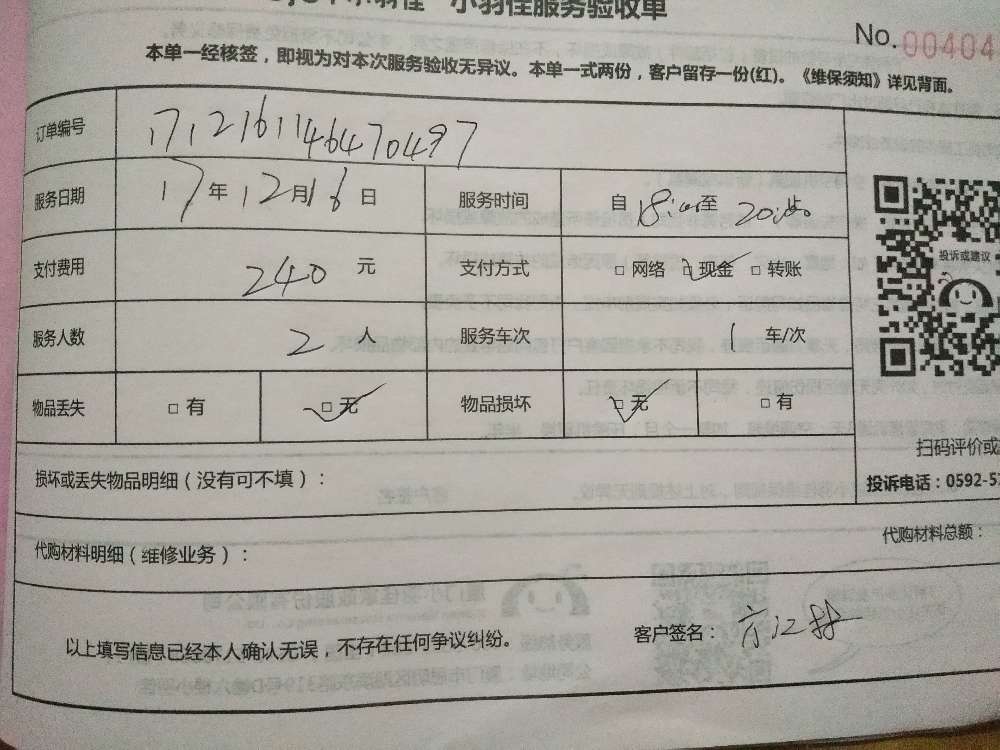 小羽佳服务验收单
No.00404
本单一经核签，即视为对本次服务验收无异议。本单一式两份，客户留存一份(红)。《维保须知》详见背面。
订单编号 1712161146470497
服务日期 17年12月16日 服务时间 自18:00至20:00止
支付费用 240 元 支付方式 □网络 ☑现金 □转账
服务人数 2 人 服务车次 1 车/次
物品丢失 □有 ☑无 物品损坏 ☑无 □有
投诉或建议
扫码评价或
投诉电话：0592-5
损坏或丢失物品明细（没有可不填）：
代购材料明细（维修业务）： 代购材料总额：
以上填写信息已经本人确认无误，不存在任何争议纠纷。 客户签名：